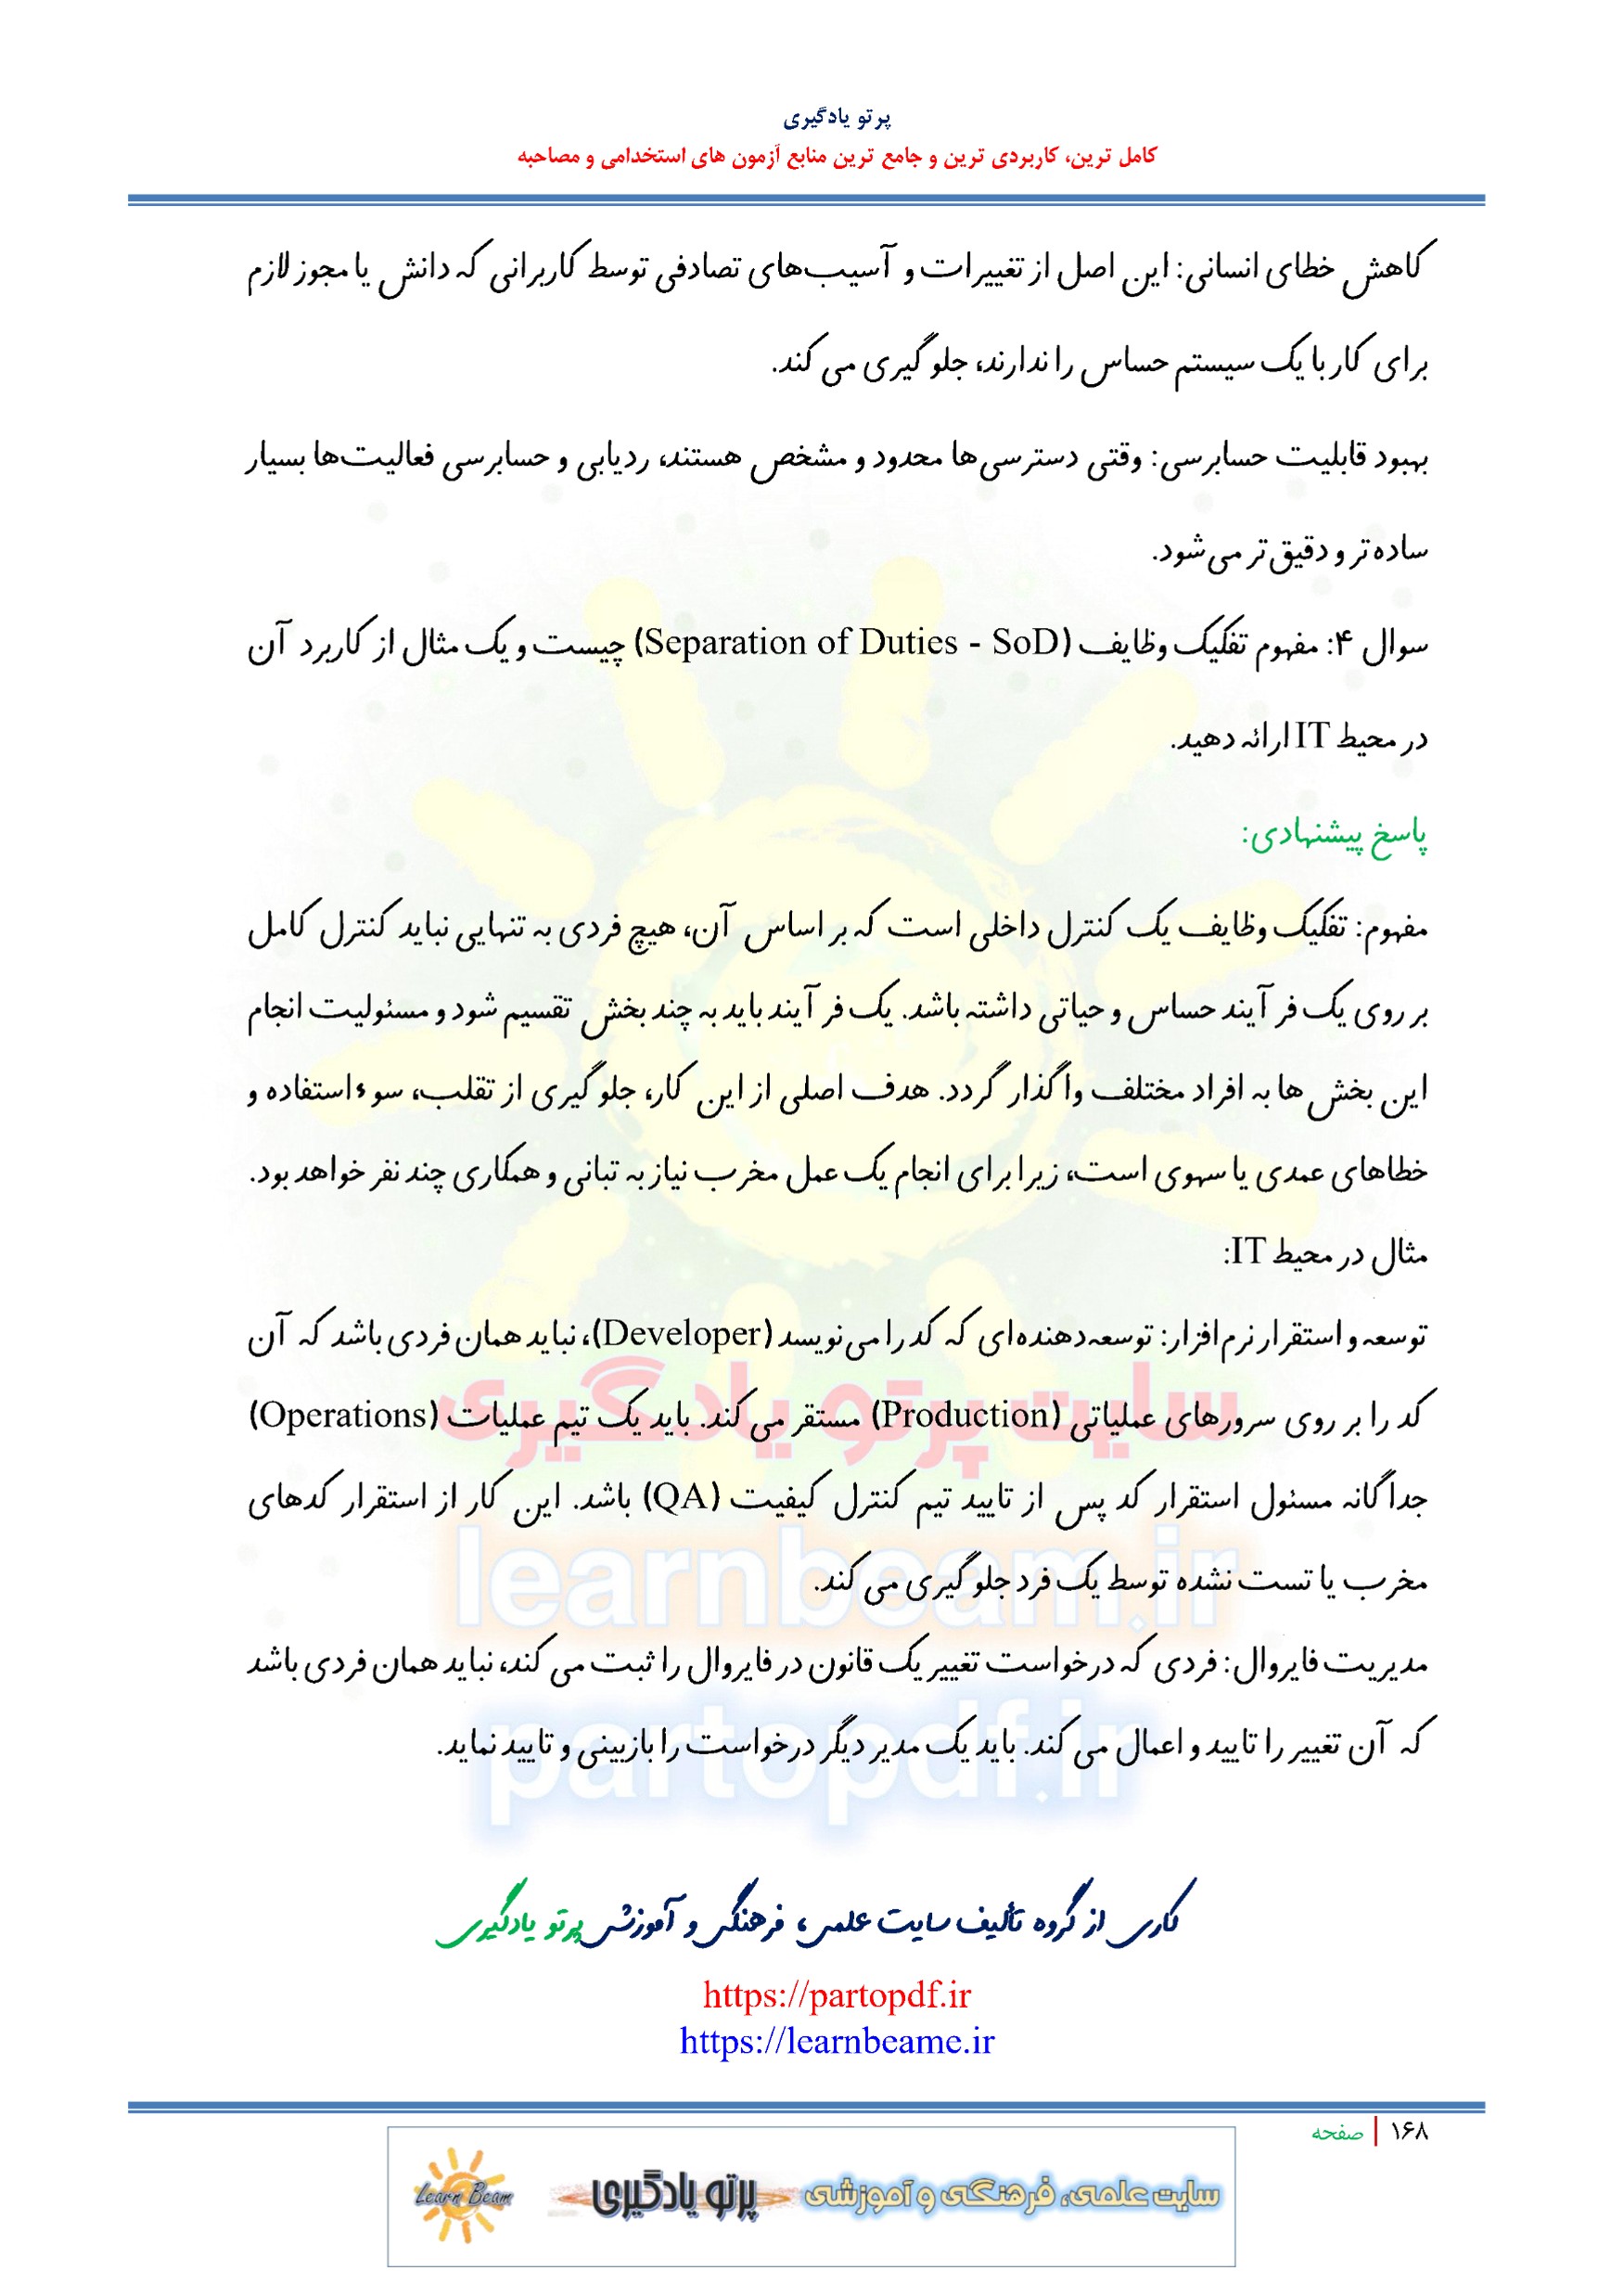 پرتو یادگیری
کامل ترین، کاربردی ترین و جامع ترین منابع آزمون های استخدامی و مصاحبه
کاهش خطای انسانی: این اصل از تغییرات و آسیب‌های تصادفی توسط کاربرانی که دانش یا مجوز لازم
برای کار با یک سیستم حساس را ندارند، جلوگیری می کند.
بهبود قابلیت حسابرسی: وقتی دسترسی‌ها محدود و مشخص هستند، ردیابی و حسابرسی فعالیت‌ها بسیار
ساده‌تر و دقیق‌تر می‌شود.
سوال ۴: مفهوم تفکیک وظایف (Separation of Duties - SoD) چیست و یک مثال از کاربرد آن
در محیط IT ارائه دهید.
پاسخ پیشنهادی:
مفهوم: تفکیک وظایف یک کنترل داخلی است که بر اساس آن، هیچ فردی به تنهایی نباید کنترل کامل
بر روی یک فرآیند حساس و حیاتی داشته باشد. یک فرآیند باید به چند بخش تقسیم شود و مسئولیت انجام
این بخش ها به افراد مختلف واگذار گردد. هدف اصلی از این کار، جلوگیری از تقلب، سوءاستفاده و
خطاهای عمدی یا سهوی است، زیرا برای انجام یک عمل مخرب نیاز به تبانی و همکاری چند نفر خواهد بود.
مثال در محیط IT:
توسعه و استقرار نرم‌افزار: توسعه‌دهنده‌ای که کد را می‌نویسد (Developer)، نباید همان فردی باشد که آن
کد را بر روی سرورهای عملیاتی (Production) مستقر می کند. باید یک تیم عملیات (Operations)
جداگانه مسئول استقرار کد پس از تایید تیم کنترل کیفیت (QA) باشد. این کار از استقرار کدهای
مخرب یا تست نشده توسط یک فرد جلوگیری می کند.
مدیریت فایروال: فردی که درخواست تغییر یک قانون در فایروال را ثبت می کند، نباید همان فردی باشد
که آن تغییر را تایید و اعمال می کند. باید یک مدیر دیگر درخواست را بازبینی و تایید نماید.
سایت پرتو یادگیری
learnbeam.ir
partopdf.ir
کاری از گروه تألیف سایت علمی، فرهنگی و آموزشی پرتو یادگیری
https://partopdf.ir
https://learnbeame.ir
۱۶۸ | صفحه
سایت علمی، فرهنگی و آموزشی پرتو یادگیری Learn Beam